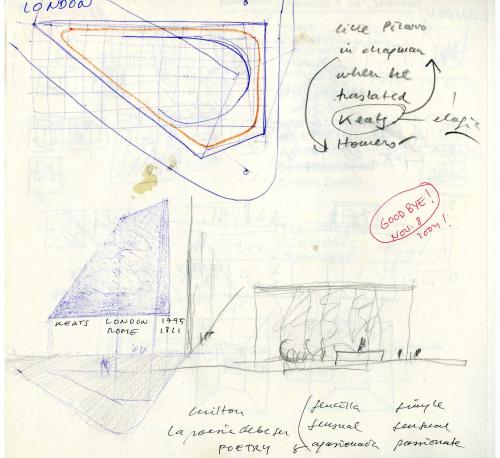 LONDON
like Pizarro
in chapman
when he
traslated
Keats — elogie
!
Homero
GOOD BYE!
NOV. 8
2004!
KEATS LONDON 1795
ROME 1821
Milton
La poesía debe ser sencilla simple
sensual sensual
POETRY apasionada passionate